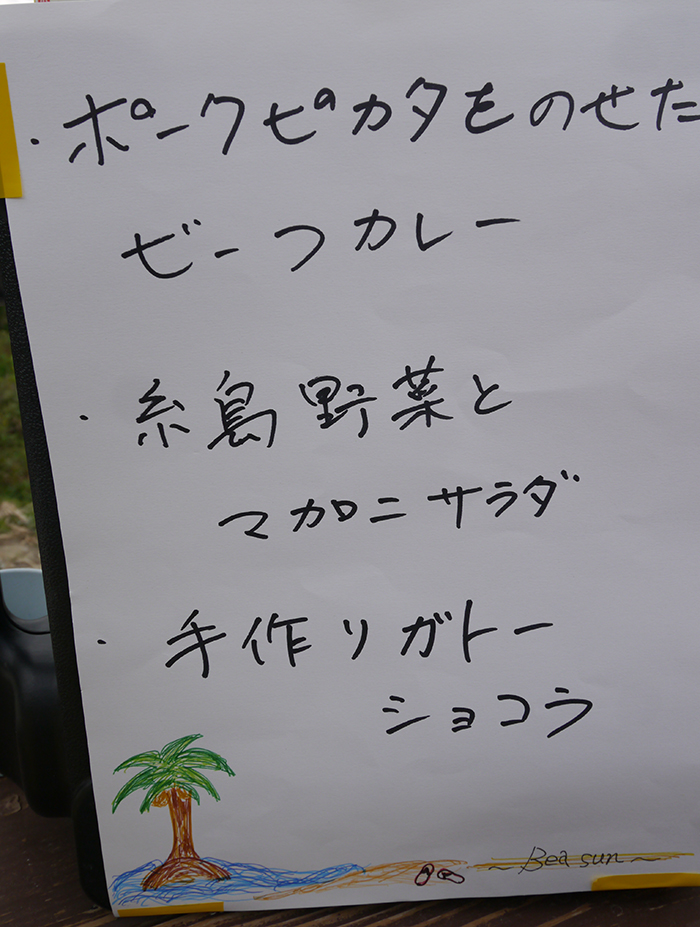 ・ポークピカタをのせた
ビーつカレー
・糸島野菜と
マカロニサラダ
・手作りガトー
ショコラ
~Bea sun~